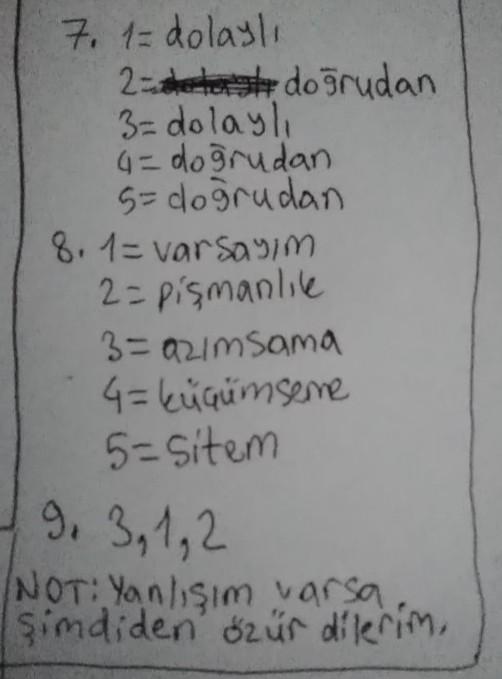 7. 1= dolaylı
2= doğrudan
3= dolaylı
4= doğrudan
5= doğrudan
8. 1= varsayım
2= pişmanlık
3= azımsama
4= küçümseme
5= Sitem
9. 3,1,2
NOT: Yanlışım varsa
şimdiden özür dilerim.